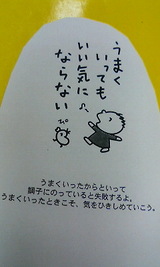 うまく
いっても
いい気に
ならない
うまくいったからといって
調子にのっていると失敗するよ。
うまくいったときこそ、気をひきしめていこう。